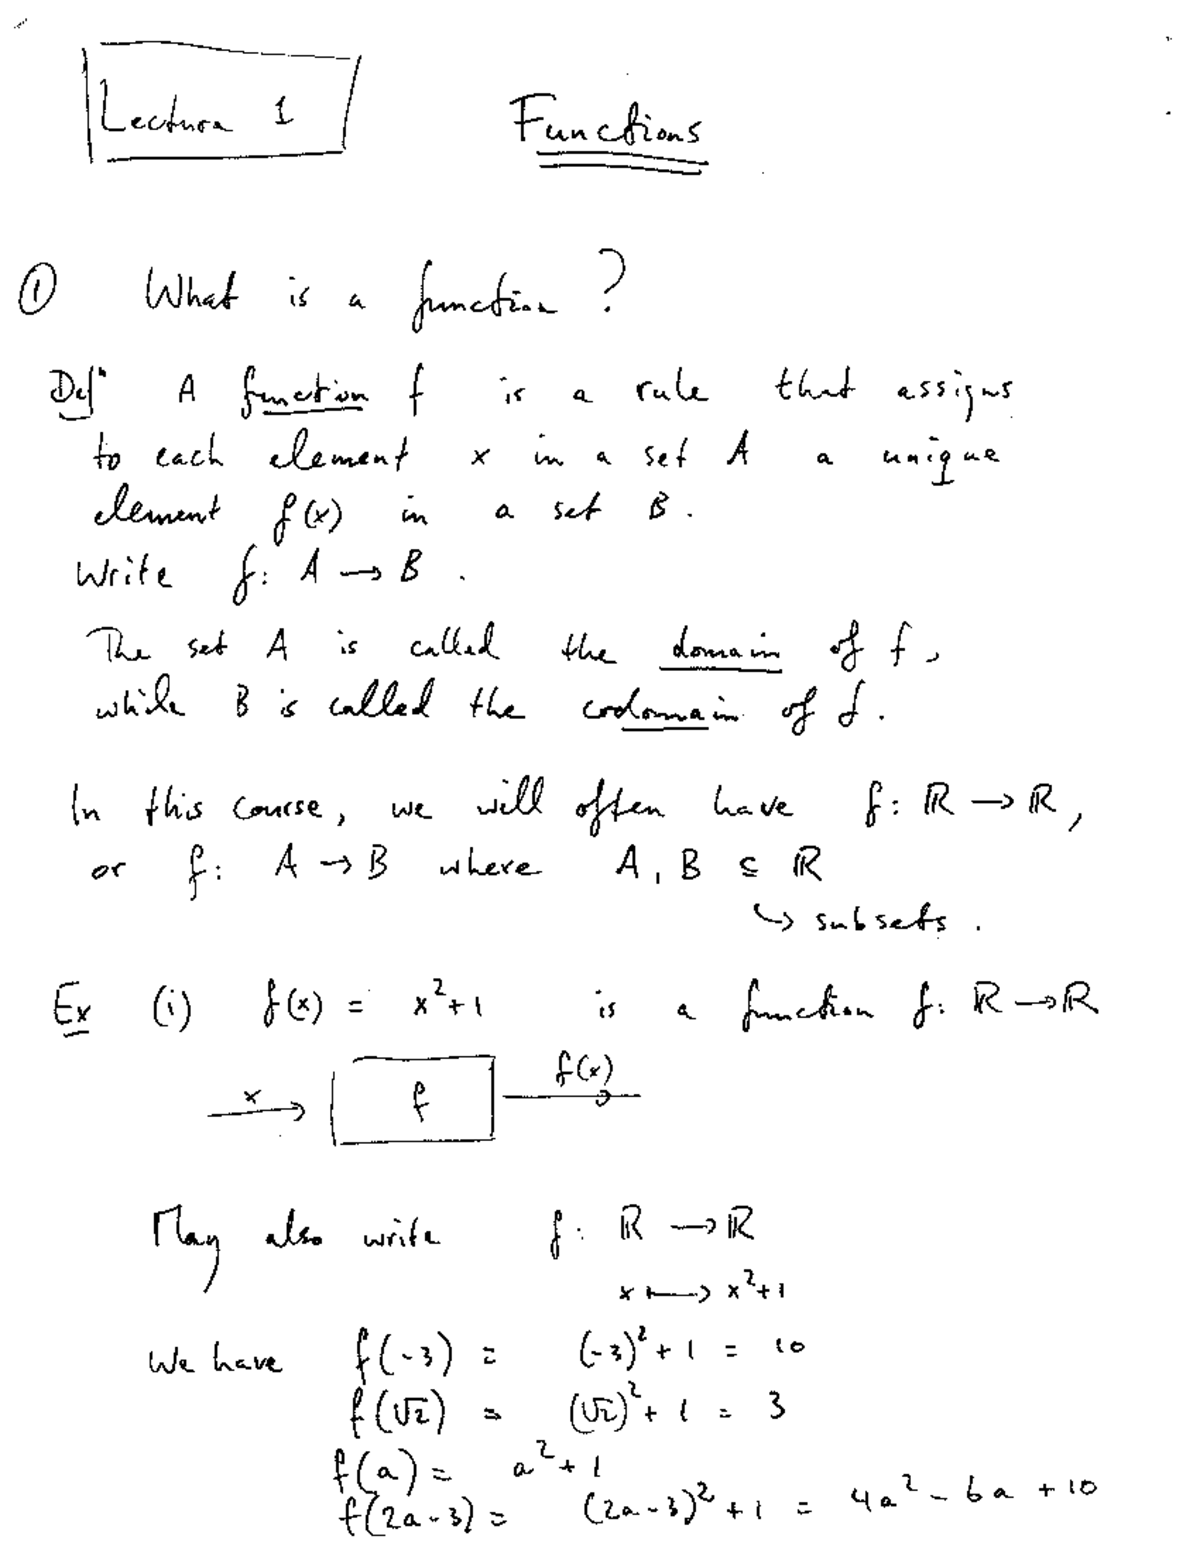 Lecture 1
Functions
① What is a function?
Defⁿ A function f is a rule that assigns
to each element x in a set A a unique
element f(x) in a set B.
Write f: A → B.
The set A is called the domain of f,
while B is called the codomain of f.
In this course, we will often have f: ℝ → ℝ,
or f: A → B where A, B ⊆ ℝ
↳ subsets.
Ex (i) f(x) = x²+1 is a function f: ℝ → ℝ
x → f f(x) →
May also write f: ℝ → ℝ
x ⟼ x²+1
We have f(-3) = (-3)²+1 = 10
f(√2) = (√2)²+1 = 3
f(a) = a²+1
f(2a-3) = (2a-3)²+1 = 4a²-6a+10